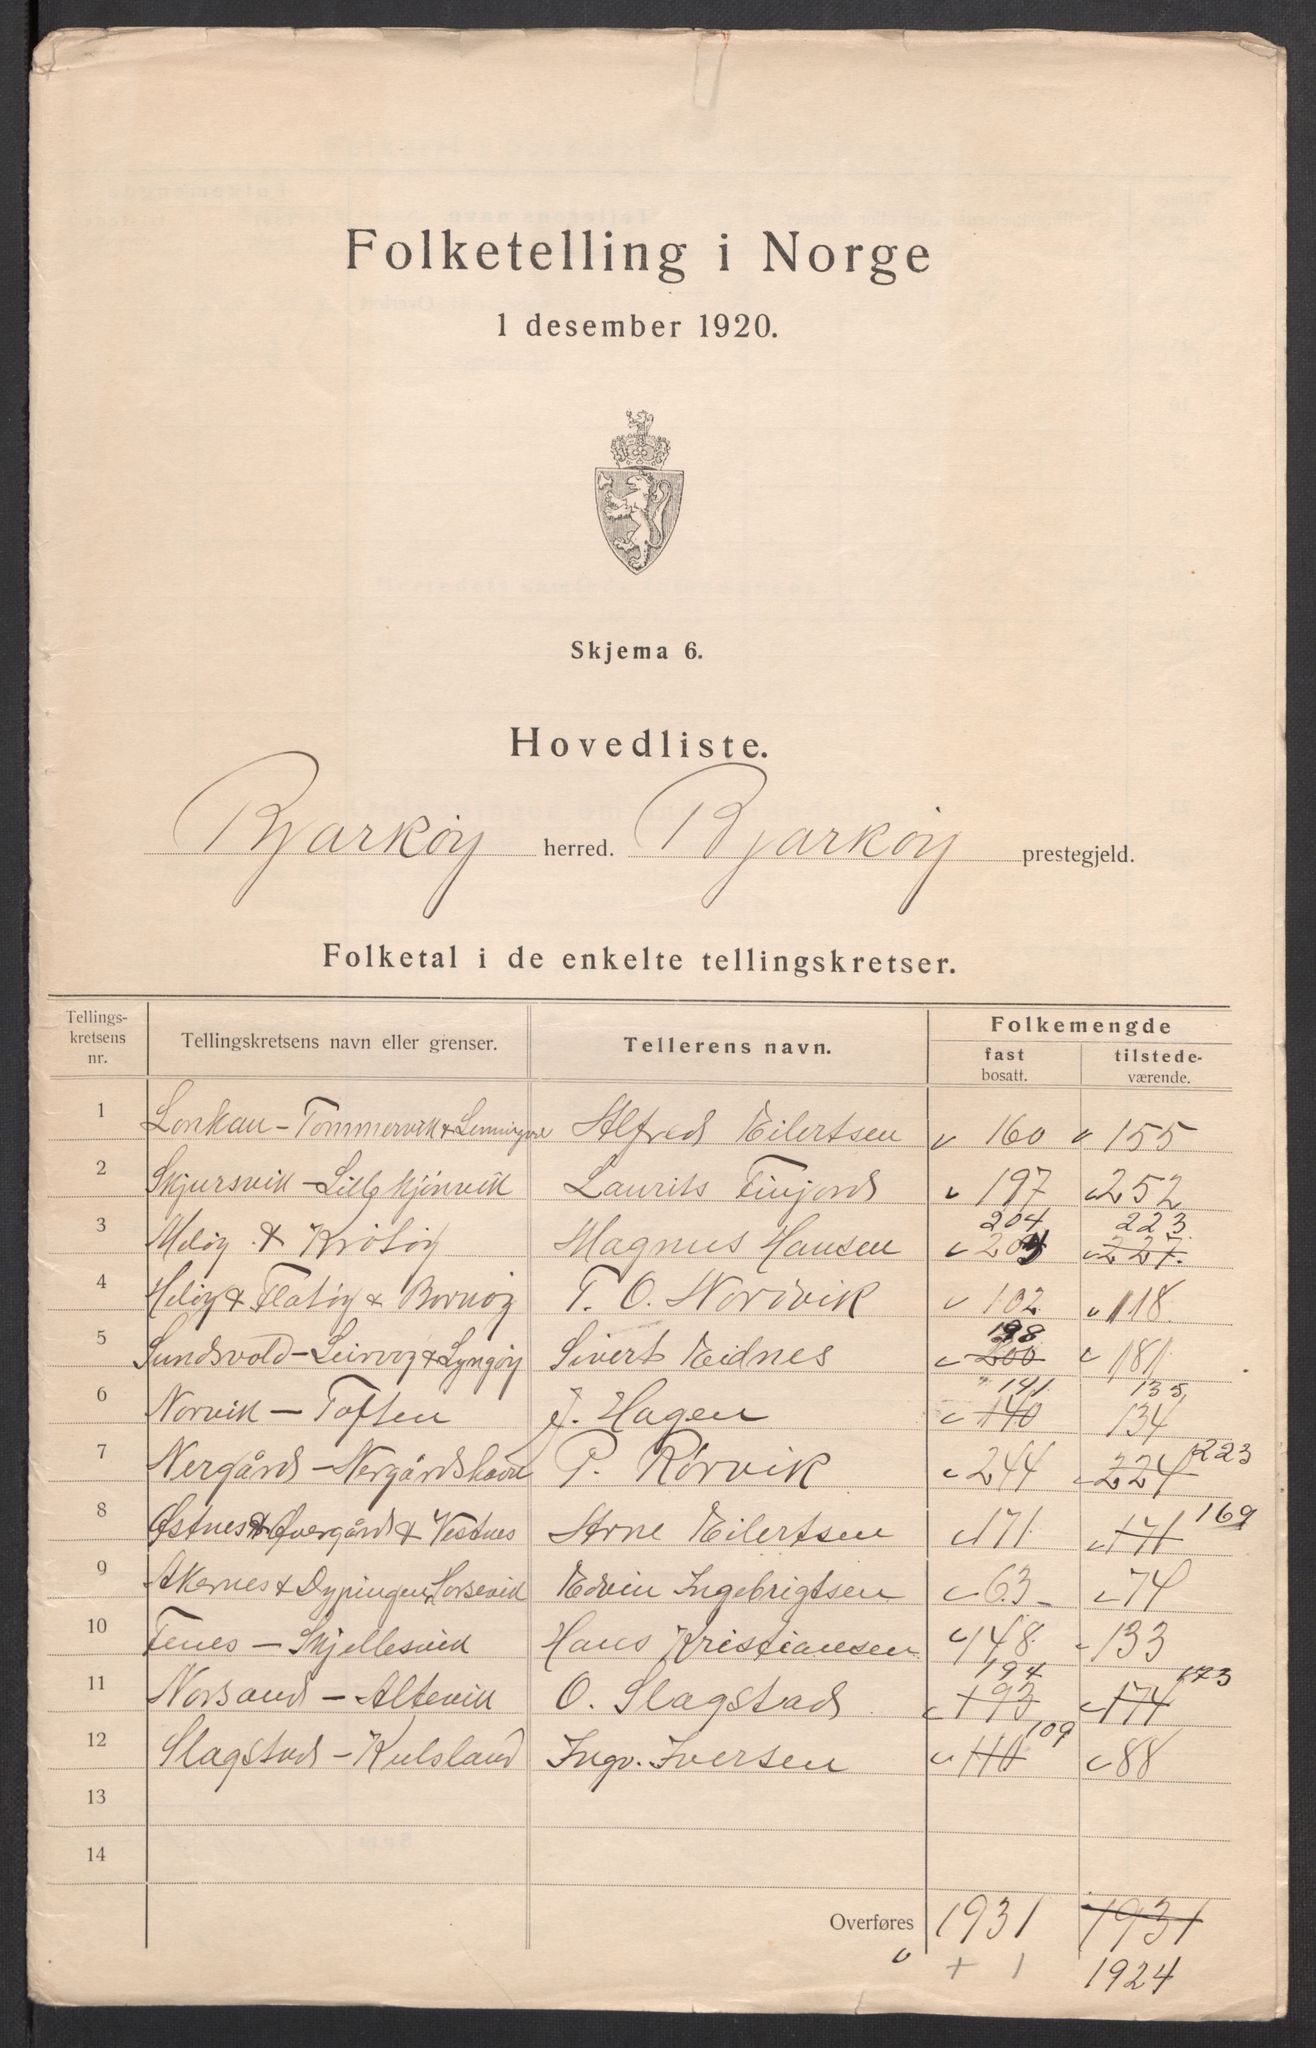 Folketelling i Norge
1 desember 1920.
Skjema 6.
Hovedliste.
Bjarkøy herred. Bjarkøy prestegjeld.
Folketal i de enkelte tellingskretser.
Tellings-kretsens nr. Tellingskretsens navn eller grenser. Tellerens navn. Folkemengde
fast bosatt. tilstede-værende.
1 Lonkau - Tømmervik & Alfred Eilertsen v 160 v 155
2 Skjursvik - Lilleskjønvik Laurits Finjord v 197 v 252
204 223
3 Meløy & Krøtøy Magnus Hansen v 203 v 227.
4 Heløy & Flatøy & Bornøy T. O. Nordvik v 102 v 118.
198
5 Sundsvold - Leirvog & Lyngøy Sivert Eidnes v 200 v 181
141 135
6 Norvik - Toften J. Hagen v 140 134
7 Nergård - Nergårdshavn P. Rørvik v 244 v 224 223
8 Østnes & Øvergård & Vestnes Arne Eilertsen v 171 v 171 169
9 Akernes & Dypingen, Sørsevik Edvin Ingebrigtsen v 63 v 74
10 Fenes - Skjellesvik Hans Kristiansen v 148 v 133
194 173
11 Norsand - Altevik O. Slagstad v 193 v 174
109
12 Slagstad - Kulsland Ingv. Iversen v 110 v 88
13
14
Overføres 1931 1931
v + 1 1924